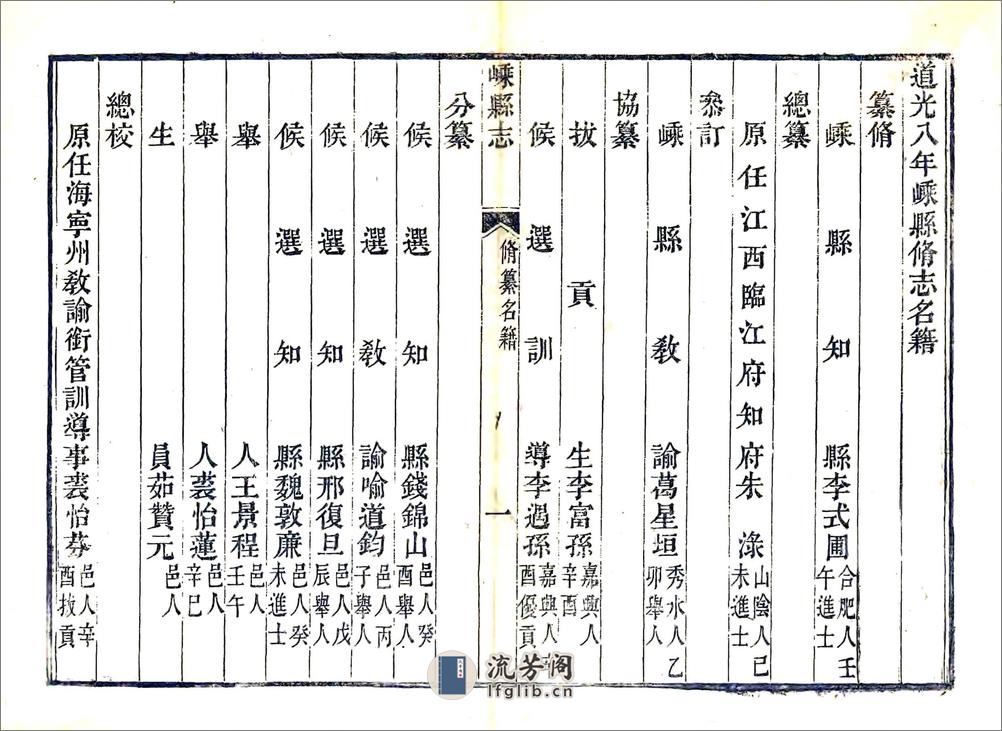 道光八年嵊縣脩志名籍
纂脩
嵊縣知縣李式圃合肥人壬午進士
總纂
原任江西臨江府知府朱淥山陰人己未進士
叅訂
嵊縣敎諭葛星垣秀水人乙卯舉人
協纂
拔貢生李富孫嘉興人辛酉
候選訓導李遇孫嘉興人酉優貢
嵊縣志
脩纂名籍
一
分纂
候選知縣錢錦山邑人癸酉舉人
候選敎諭喻道鈞邑人丙子舉人
候選知縣邢復旦邑人戊辰舉人
候選知縣魏敦廉邑人癸未進士
舉人王景程邑人壬午
舉人裘怡蓮邑人辛巳
生員茹贊元邑人
總校
原任海寧州敎諭銜管訓導事裘怡芬邑人辛酉拔貢
流芳阁
lfglib.cn